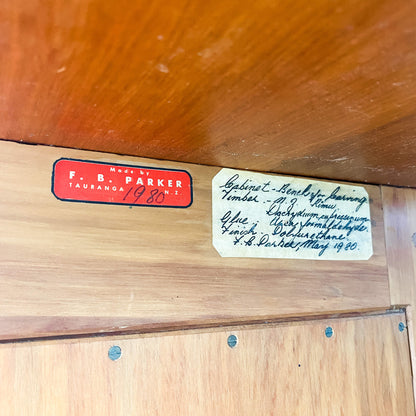 Made by
F. B. PARKER
TAURANGA 1980 N Z
Cabinet - Bench for carving
Timber - N Z Rimu
Dacrydium cupressinum
Glue Urea formaldehyde.
Finish Polyurethane.
F. B. Parker, May 1980.